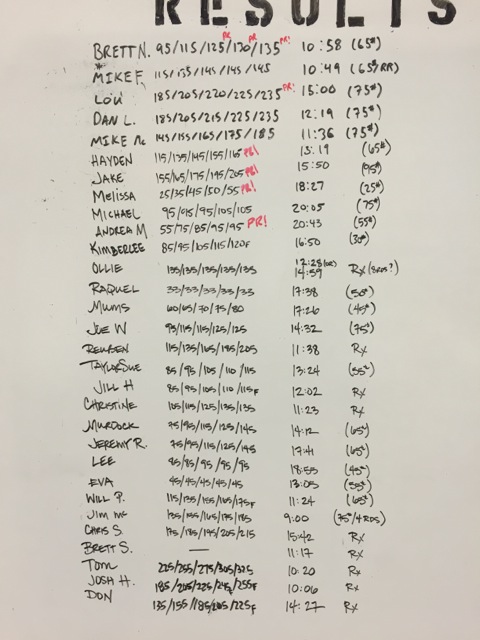 RESULTS
BRETT N. 95/115/125/130/135 PR PR PR! 10:58 (65#)
*MIKE F. 115/135/145/145/145 10:49 (65#/RR)
LOU 185/205/220/225/235 PR! 15:00 (75#)
DAN L. 185/205/215/225/235 12:19 (75#)
MIKE Mc 145/155/165/175/185 11:36 (75#)
HAYDEN 115/135/145/155/165 PR! 13:19 (65#)
JAKE 155/165/175/195/205 PR! 15:50 (95#)
Melissa 25/35/45/50/55 PR! 18:27 (25#)
MICHAEL 95/95/95/105/105 20:05 (75#)
ANDREA M 55/75/85/95/95 PR! 20:43 (55#)
KIMBERLEE 85/95/105/115/120F 16:50 (30#)
OLLIE 135/135/135/135/135 12:28 14:59 Rx (3RDS?)
RAQUEL 33/33/33/33/33 17:38 (50#)
Mums 60/65/70/75/80 17:26 (45#)
JOE W 95/115/115/125/125 14:32 (75#)
REUBEN 115/135/165/185/205 11:38 Rx
TAYLOR SUE 85/95/105/110/115 13:24 (55#)
JILL H 85/95/105/110/115F 12:02 Rx
CHRISTINE 105/115/125/135/135 11:23 Rx
MURDOCK 75/95/115/125/145 14:12 (65#)
JEREMY R. 75/95/115/125/145 17:41 (65#)
LEE 85/85/95/95/95 18:55 (45#)
EVA 45/45/45/45/45 13:05 (35#)
WILL P. 115/135/155/165/175F 11:24 (65#)
Jim Mc 135/155/165/175/185 9:00 (75#/4 RDS)
CHRIS S. 175/185/195/205/215 15:42 Rx
BRETT S. — 11:17 Rx
Tom 225/255/275/305/325 10:20 Rx
JOSH H. 185/205/225/245/255F 10:06 Rx
DON 135/155/185/205/225F 14:27 Rx